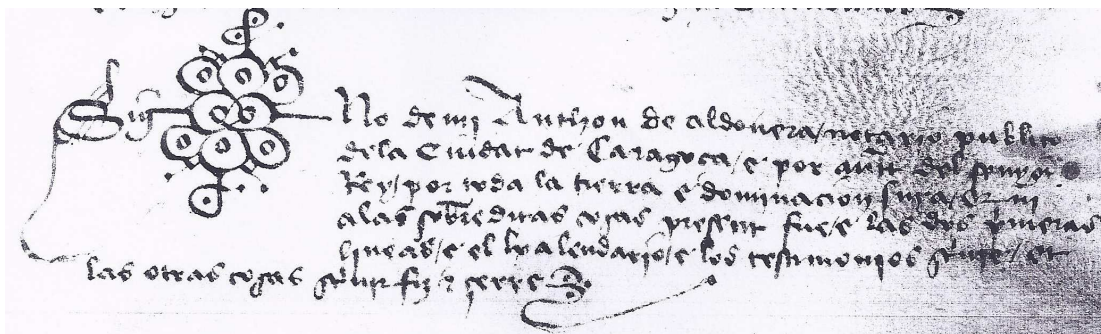 Sig No de mi Anthon de aldovera / notario publico
dela Ciudat de Caragoça / e por auct del senyor
Rey / por toda la tierra e dominacion suya / Et qui
alas sobreditas cosas present fue / e las dos primeras
lineas / e el kalendario / e los testimonios scriuie / et
las otras cosas scriuir fiz e çerre